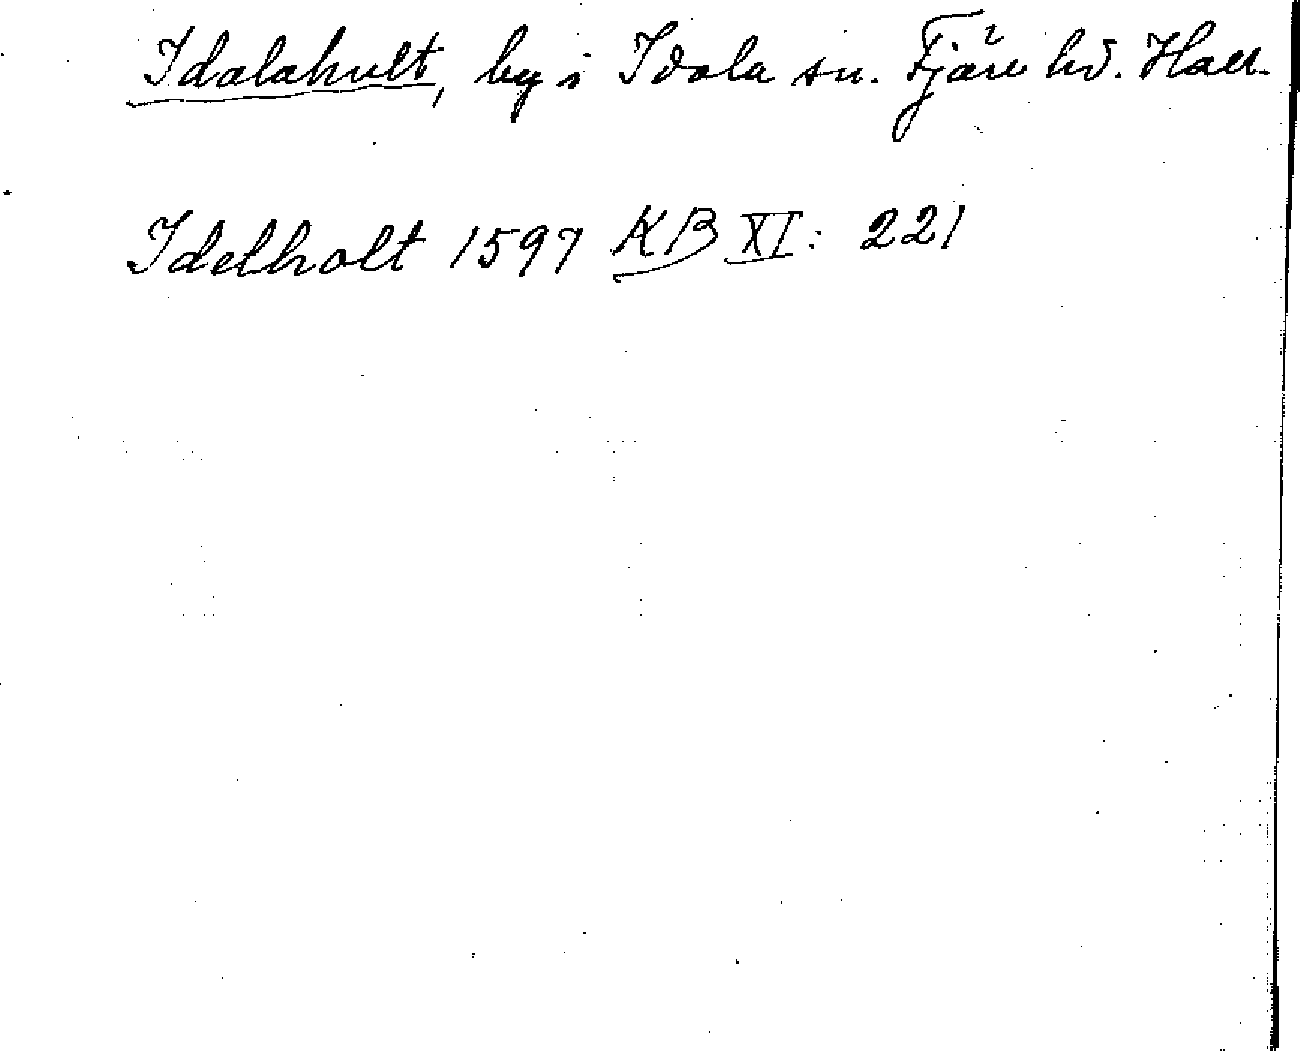 Idalahult, by i Idala sn. Fjäre hd. Hall.
Idelholt 1597 KB XI: 221